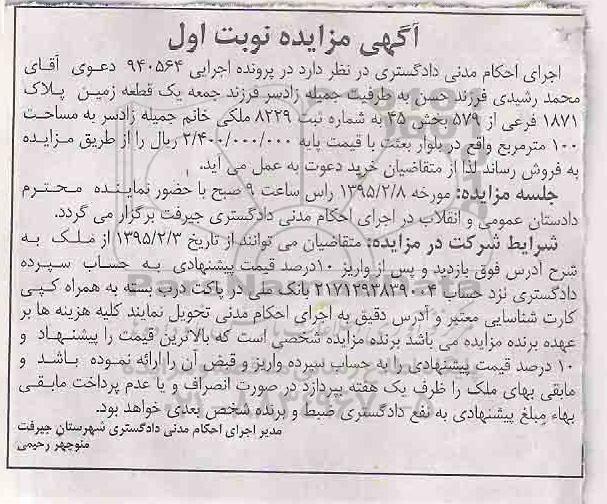 آگهی مزایده نوبت اول
اجرای احکام مدنی دادگستری در نظر دارد در پرونده اجرایی ۹۴۰۵۶۴ دعوی آقای
محمد رشیدی فرزند حسن به طرفیت جمیله زادسر فرزند جمعه یک قطعه زمین پلاک
۱۸۷۱ فرعی از ۵۷۹ بخش ۴۵ به شماره ثبت ۸۲۲۹ ملکی خانم جمیله زادسر به مساحت
۱۰۰ مترمربع واقع در بلوار بعثت با قیمت پایه ۲/۴۰۰/۰۰۰/۰۰۰ ریال را از طریق مزایده
به فروش رساند لذا از متقاضیان خرید دعوت به عمل می آید.
جلسه مزایده: مورخه ۱۳۹۵/۲/۸ راس ساعت ۹ صبح با حضور نماینده محترم
دادستان عمومی و انقلاب در اجرای احکام مدنی دادگستری جیرفت برگزار می گردد.
شرایط شرکت در مزایده: متقاضیان می توانند از تاریخ ۱۳۹۵/۲/۳ از ملک به
شرح آدرس فوق بازدید و پس از واریز ۱۰درصد قیمت پیشنهادی به حساب سپرده
دادگستری نزد حساب ۲۱۷۱۲۹۳۸۳۹۰۰۴ بانک ملی در پاکت درب بسته به همراه کپی
کارت شناسایی معتبر و آدرس دقیق به اجرای احکام مدنی تحویل نمایند کلیه هزینه ها بر
عهده برنده مزایده می باشد برنده مزایده شخصی است که بالاترین قیمت را پیشنهاد و
۱۰ درصد قیمت پیشنهادی را به حساب سپرده واریز و قبض آن را ارائه نموده باشد و
مابقی بهای ملک را ظرف یک هفته بپردازد در صورت انصراف و یا عدم پرداخت مابقی
بهاء مبلغ پیشنهادی به نفع دادگستری ضبط و برنده شخص بعدی خواهد بود.
مدیر اجرای احکام مدنی دادگستری شهرستان جیرفت
منوچهر رحیمی